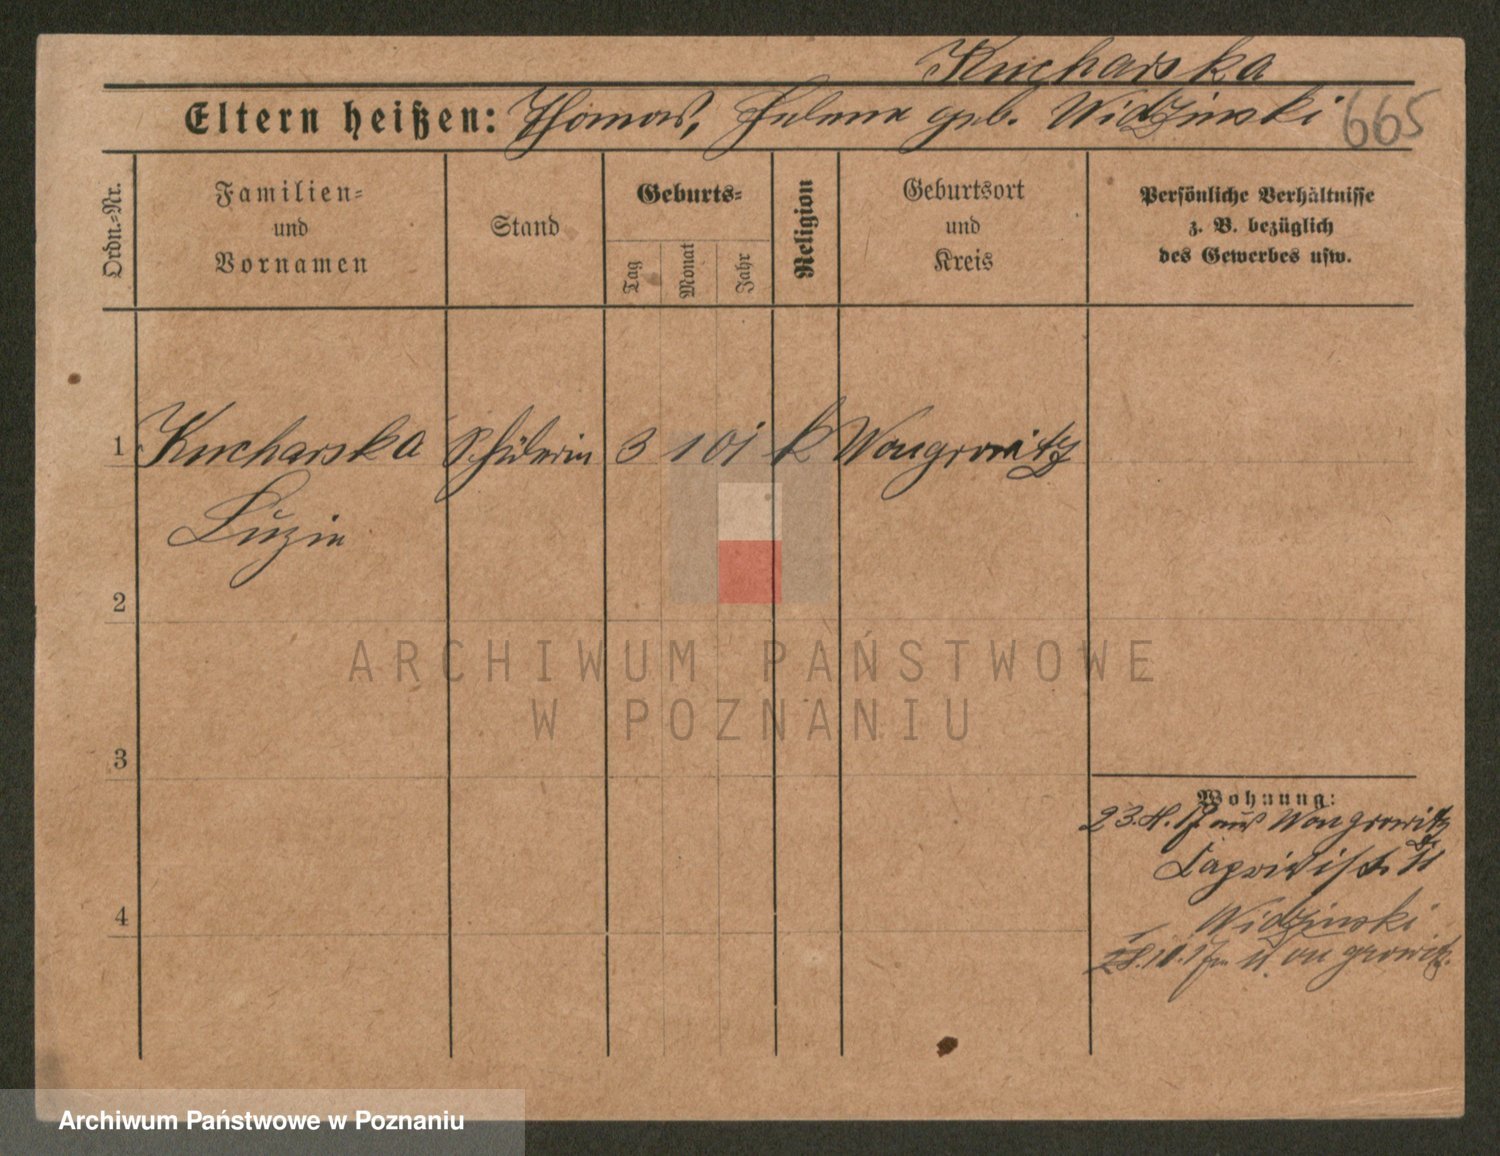 Kucharska
Eltern heißen: Thomas, Helena geb. Widzinski 665
Ordn.=Nr.
Familien=
und
Vornamen
Stand
Geburts=
Tag
Monat
Jahr
Religion
Geburtsort
und
Kreis
Persönliche Verhältnisse
z. B. bezüglich
des Gewerbes usw.
1 Kucharska Schülerin 3 10 i k Wongrowitz
Luzie
2
ARCHIWUM PAŃSTWOWE
W POZNANIU
3
Wohnung:
23.4.17 aus Wongrowitz
4
Widzinski
Wongrowitz.
Archiwum Państwowe w Poznaniu